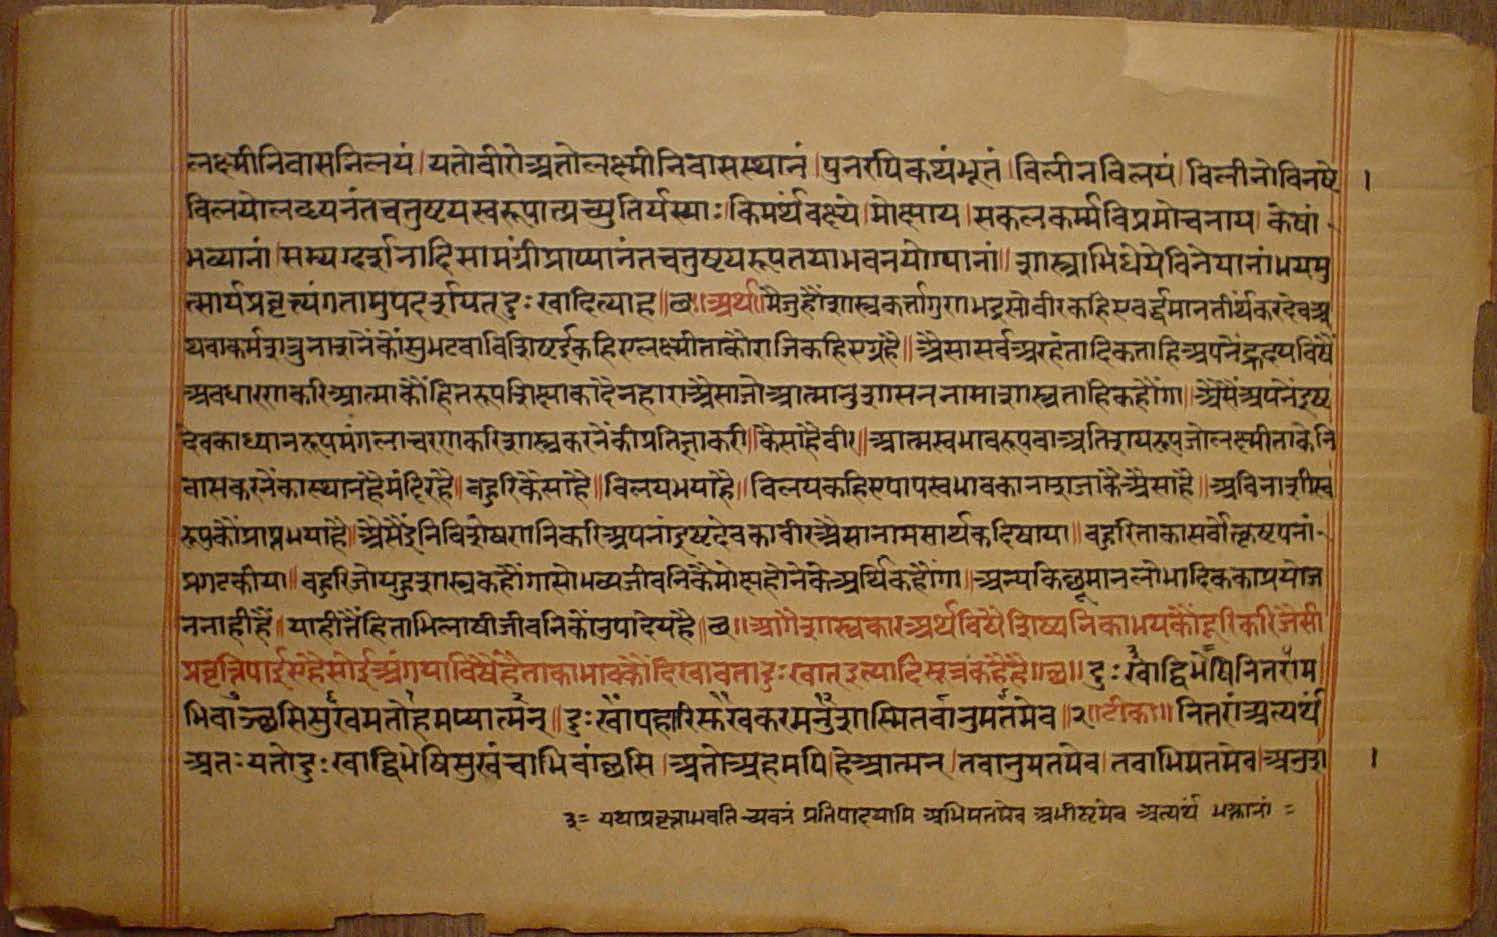 लक्ष्मीनिवासनिलयं।यतोवीरोअतोलक्ष्मीनिवासस्थानं।पुनरपिकथंभूतं।विलीनविलयं।विलीनोविनष्टो ।
विलयोलब्ध्यनंतचतुष्टयस्वरूपात्प्रच्युतिर्यस्याः।किमर्थंवक्ष्ये।मोक्षाय।सकलकर्म्मविप्रमोचनाय।केषां
भव्यानां।सम्यग्दर्शनादिसामग्रीप्राप्यानंतचतुष्टयरूपतयाभवनयोग्यानां॥शास्त्राभिधेयेविनेयानांभयमु
त्सार्यप्रवृत्त्यंगतामुपदर्शयतदुःखादित्याह॥छ॥अर्थ॥मैजुहौंशास्त्रकर्त्तागुणभद्रसोवीरकहिएवर्द्धमानतीर्थंकरदेवअ
थवाकर्मशत्रुनाशनेंकौंसुभटवाविशिष्टईकहिएलक्ष्मीताकौराजिकहिएग्रहै॥औसासर्वअरहंतादिकताहिअपनेंहृदयविषैं
अवधारणाकरिआत्माकौंहितरूपशिक्षाकादेनहाराऔसाजोआत्मानुशासननामाशास्त्रताहिकहौंगा॥औसैंअपनेइष्ट
देवकाध्यानरूपमंगलाचरणकरिशास्त्रकरनेंकीप्रतिज्ञाकरी॥कैसाहैवीर॥आत्मस्वभावरूपवाअतिशयरूपजोलक्ष्मीताकेनि
वासकरनेंकास्थानहैमंदिरहै॥बहुरिकैसाहै॥विलयभयाहै॥विलयकहिएपापस्वभावकानाशजाकैऔसाहै॥अविनाशीस्व
रूपकौंप्राप्तभयाहै॥औसैंइनिविशेषणनिकरिअपनांइष्टदेवकावीरऔसानामसार्थकदिषाया॥बहुरिताकासर्वोत्कृष्टपनां
प्रगटकीया॥बहुरिजोयहुशास्त्रकहौंगासोभव्यजीवनिकैमोक्षहोनेकेअर्थिकहौंगा॥अन्यकिछूमानलोभादिककाप्रयोज
ननाहीहै॥याहीतैंहिताभिलाषीजीवनिकौंउपादेयहै॥छ॥आगैशास्त्रकारअर्थविषैशिष्यनिकाभयकौंदूरिकरिजैसी
प्रवृत्तिपाईएहैसोईअंगयाविषैहैताकाभावकौंदिखावतादुःखातइत्यादिसूत्रकहैहै॥छ॥दुःखाद्विभेषिनितराम
भिवांछसिसुखमतोहमप्यात्मन्॥दुःखापहारिसुखकरमनुशास्मितवानुमतमेव॥२॥टीका॥नितरांअत्यर्थं
अतःयतोदुःखाद्विभेषिसुखंचाभिवांछसि।अतोअहमपि।हेआत्मन्।तवानुमतमेव।तवाभिमतमेव।अनुशा ।
३= यथाप्रवृत्ताभवति च्यवनं प्रतिपादयामि अभिमतमेव अभीष्टमेव अत्यर्थं भक्तानां =